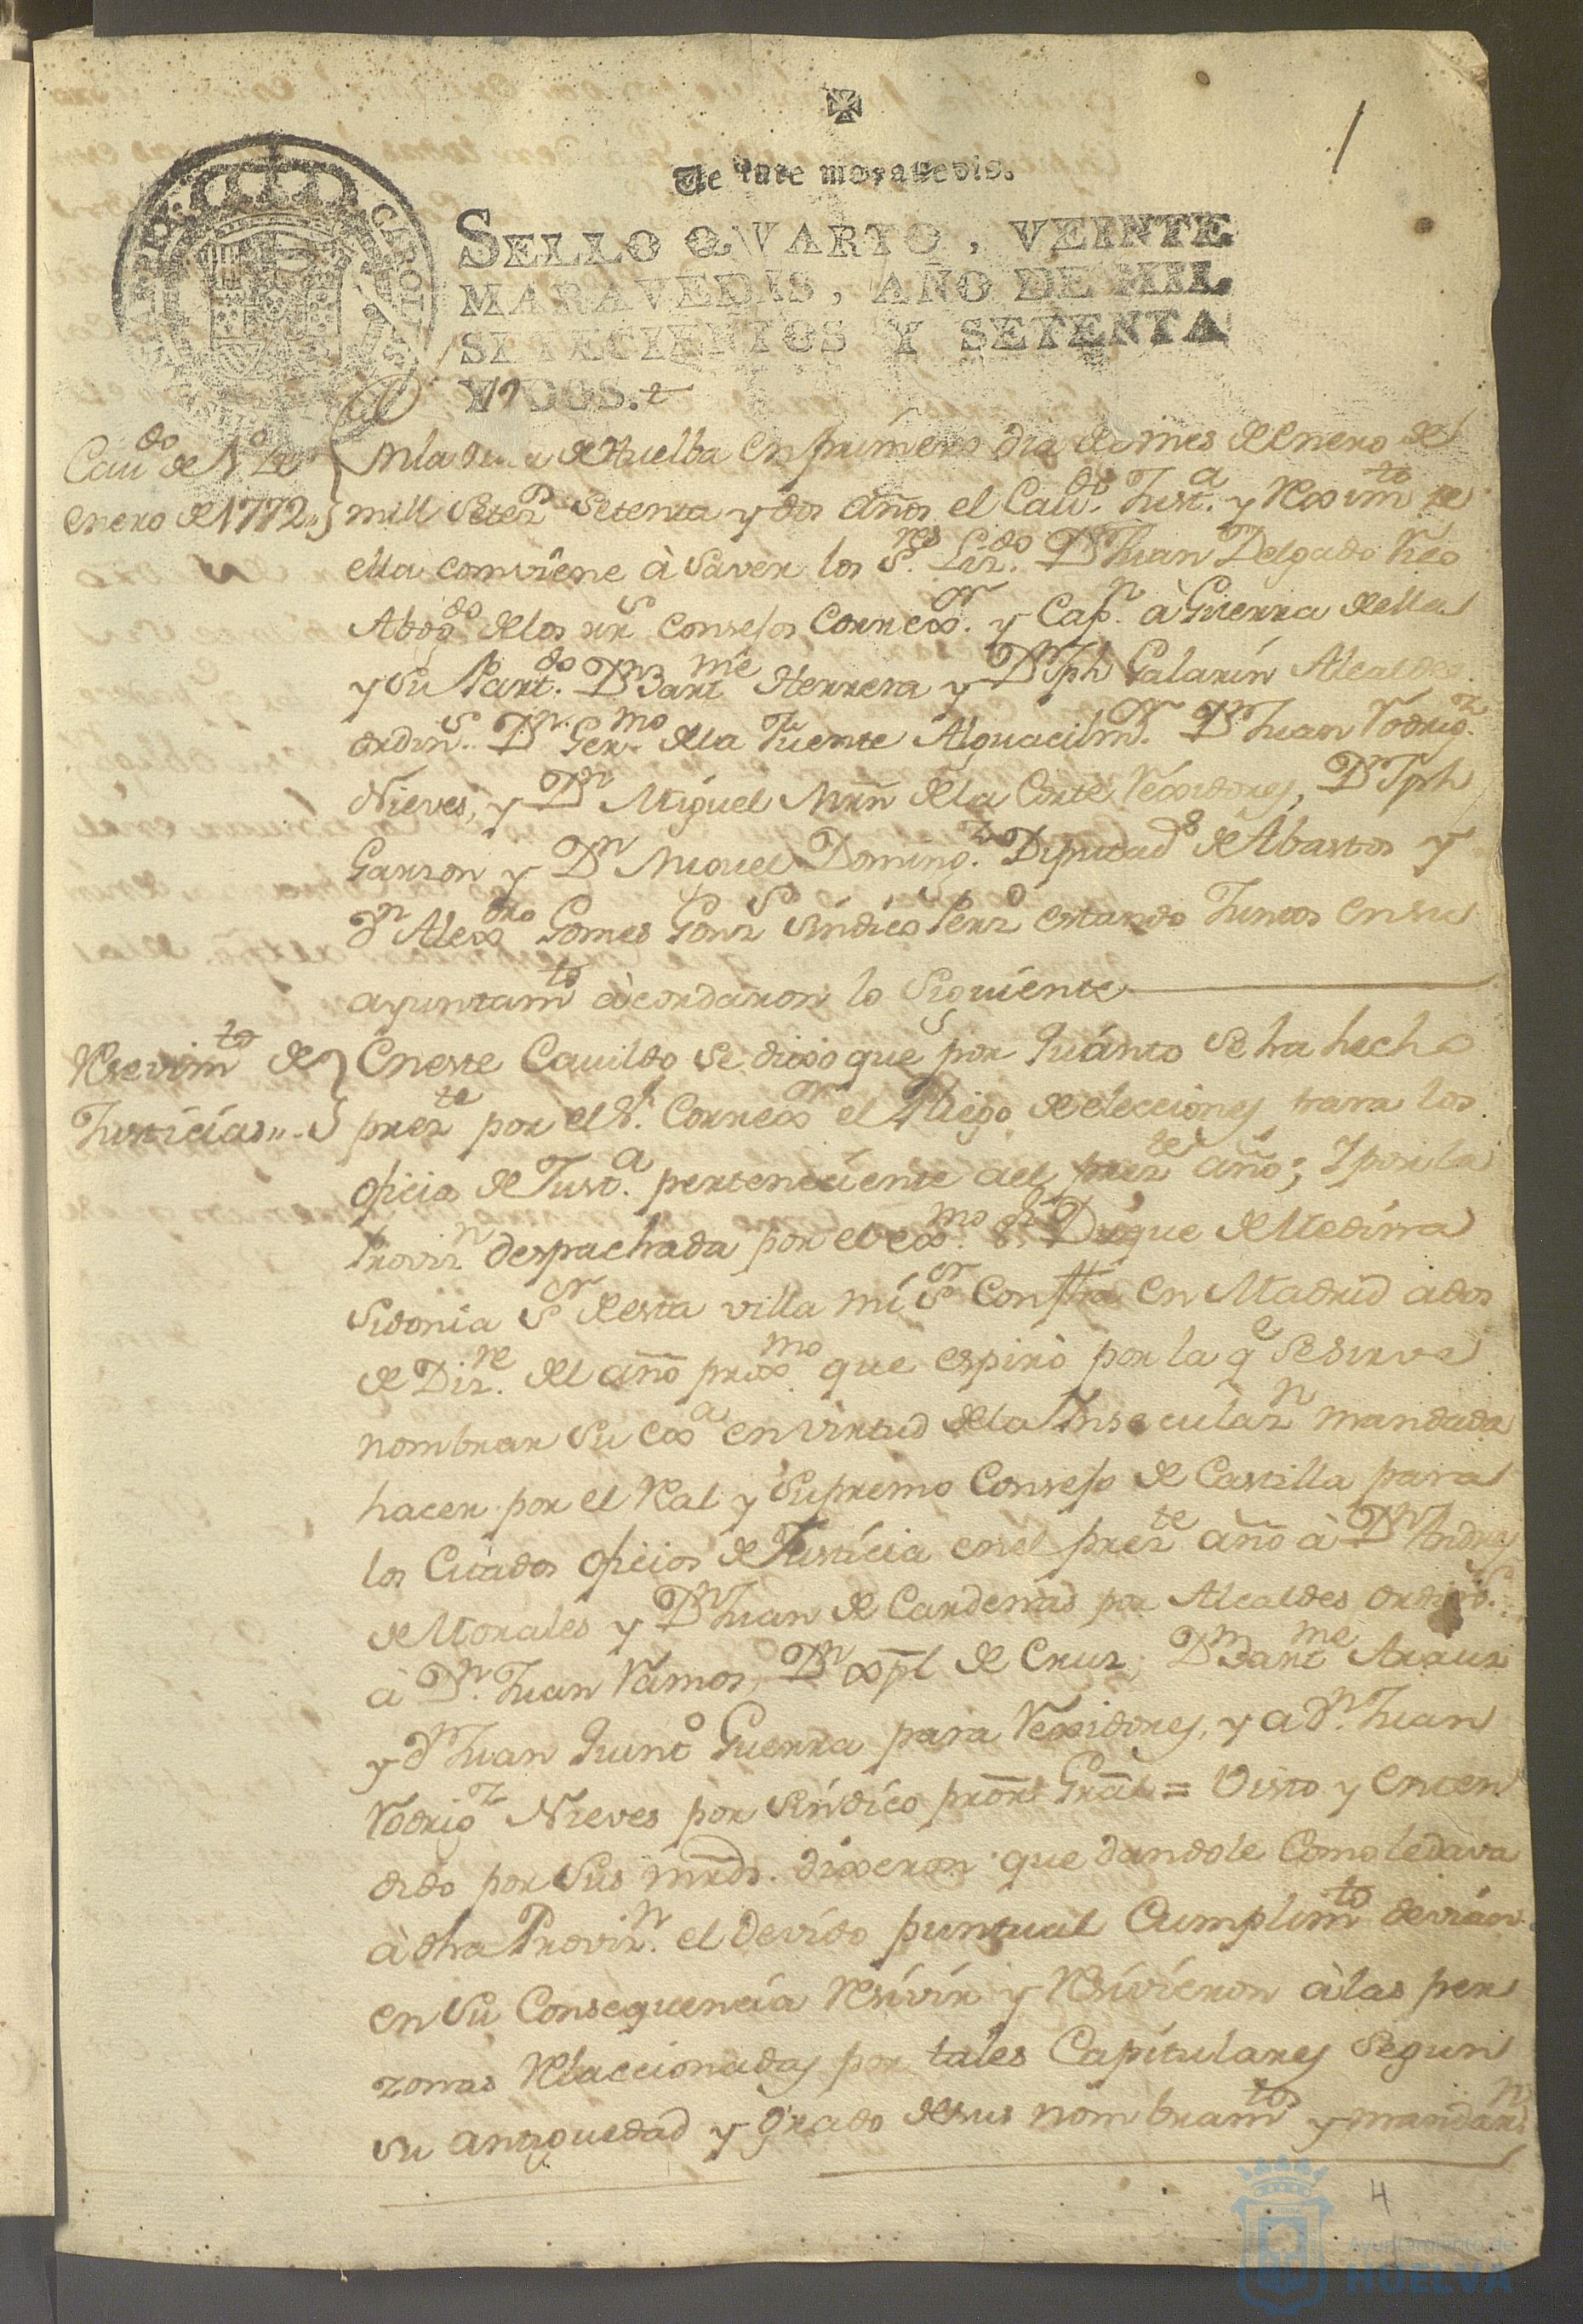 1
Veinte maravedis.
SELLO QVARTO, VEINTE
MARAVEDIS, AÑO DE MIL
SETECIENTOS Y SETENTA
Y DOS.
Caudo de 1o de
enero de 1772
En la villa de Huelba en primero dia del mes de enero de
mill setezs setenta y dos años el Cavdo Justa y Reximto de
ella comviene à saver los Sres Lizdo Dn Juan Delgado Rico
Abogdo de los rrs consejos Correxor y Capn à Guerra de ella
y su Partdo Dn Bartme Herrera y Dn Jph Galarin Alcaldes
ordins Dn Germo de la Fuente Alguacil mor Dn Juan Rodrigz
Nieves, y Dn Miguel Mrn de la Corte Rexidores, Dn Jph
Garzon y Dn Miguel Domingz Diputads de Abastos y
Dn Alexdro Gomes Gonzs Sindico Perzo estando Juntos en su
ayuntamto àcordaron lo Siguiente
Resevimto de
Justicias
En este Cavildo se dixo que por quanto se ha hecho
prezte por el Sr Correxor el Pliego de elecciones para los
oficios de Justa perteneciente a el prezte año; y por la
Provizn despachada por el exmo Sr Duque de Medina
Sidonia Sor de esta villa mi Sor con fha en Madrid a dos
de Dizre del año proxmo que espirò por la qe se sirve
nombrar su exa en virtud de la Insecularn mandada
hacer por el Ral y Supremo Consejo de Castilla para
los Citados oficios de Justicia en el prezte año à Dn Andres
de Morales y Dn Juan de Cardenas por Alcaldes ordins
à Dn Juan Ramos, Dn Xpl de Cruz, Dn Bartme Arauz
y Dn Juan Quinto Guerra para Rexidores, y a Dn Juan
Rodrigz Nieves por Sindico pror Gral = Visto y enten
dido por sus mrds. dixeron que dandole como le dava
à dha Provizn el devido puntual Cumplimto devian
en su Consequencia Resivir y Resivieron à las per
zonas Relaccionadas por tales Capitulares segun
su antiguedad y grado de sus nombramtos y mandarn
4
Ayuntamiento de
HUELVA